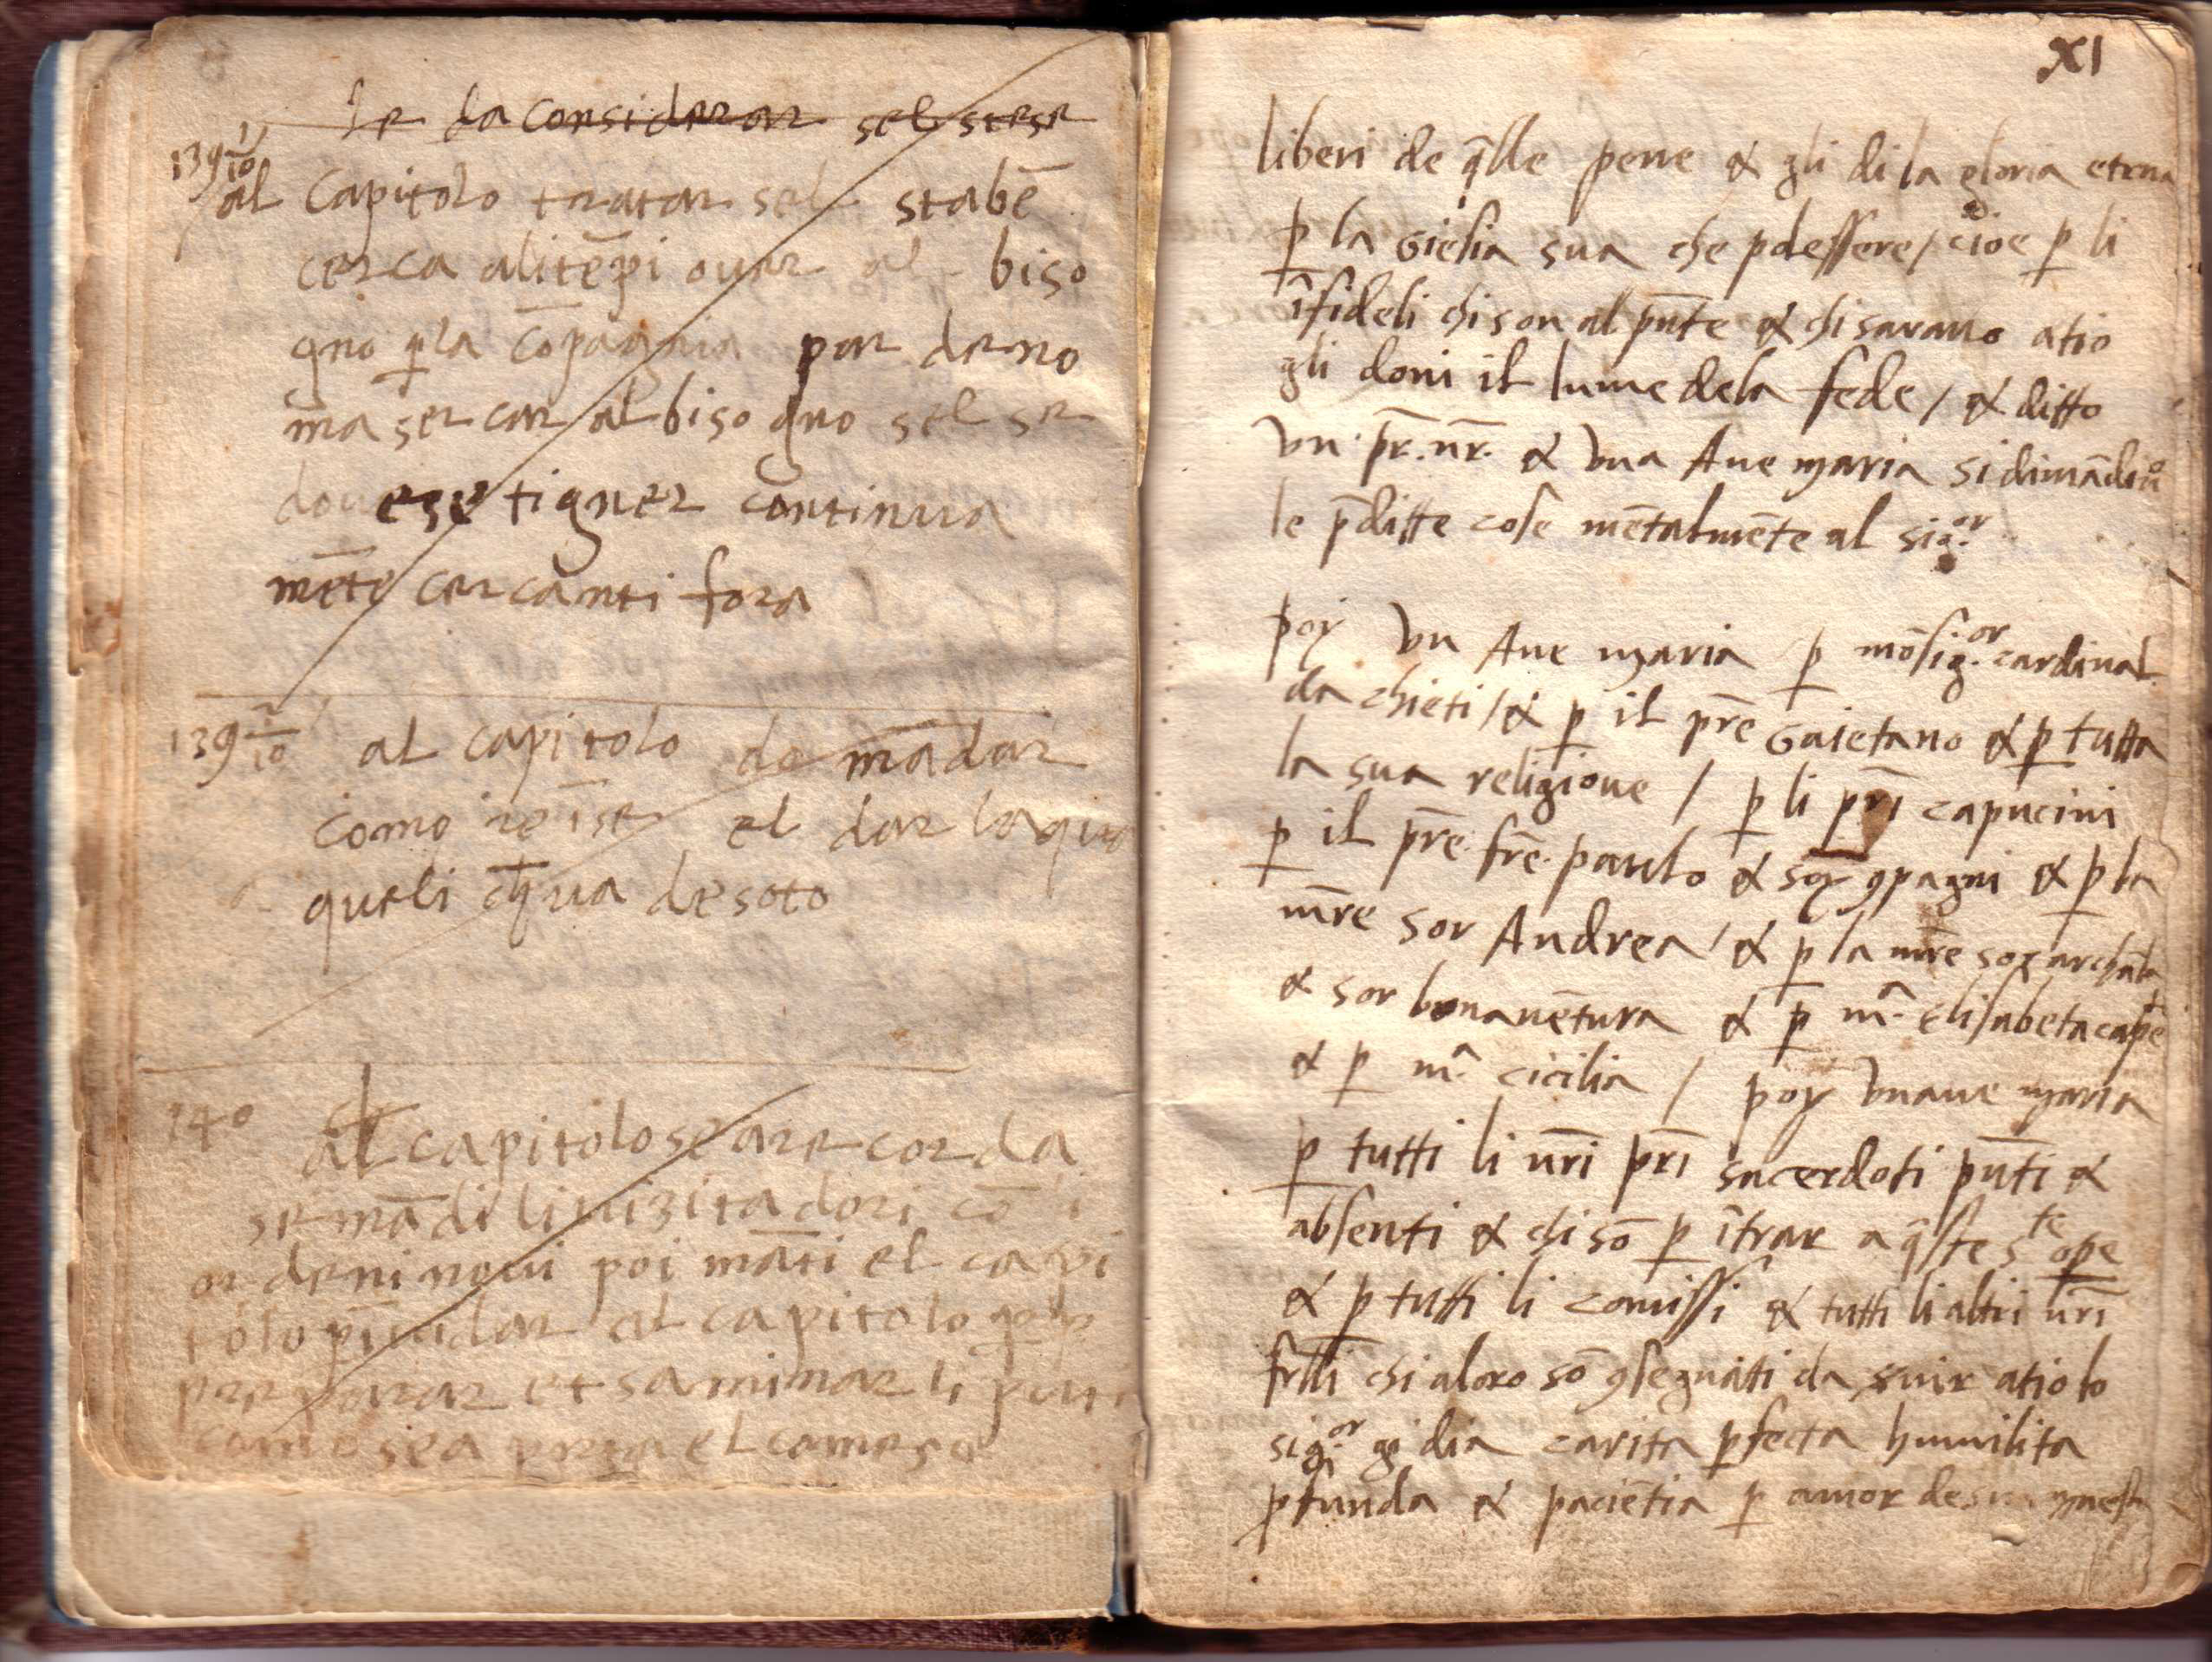 Ie da considerar sel stese
139 1/10
al capitolo tratar sel stabē
cerca ali tēpi over al biso
gno p̱ la cōpagnia par de no
ma sercar al biso gno sel se
dovese tigner continua
mēte cercanti fora
139 2/10 al capitolo de mādar
como īse el dar laqua
queli cħ va de soto
140 al capitolo se are corda
se mādi li vizitadori cō li
ordeni novi poi māti el capi
tolo p̱vidar al capitolo
per et saminar li puti
como sea el comeso
XI
liberi de q̄lle pene & gli di la gloria eterna
p̱ la Giesia sua che p̱desseʳe / cioe p̱ li
īfideli chi son al pn̄te & chi sarano atio
gli doni il lume dela fede / & ditto
vn pr̄. nr̄. & vna Ave maria si dimādia
le p̄ditte cose mētalmēte al sig.ᵒʳ
poy vn Ave maria p̱ mōsig.ᵒʳ cardinal
da chieti / & p̱ il pr̄e Gaietano & p̱ tutta
la sua religione / p̱ li pr̄i capucini
p̱ il pr̄e. frē. paulo & soy ꝯpagni & p̱ la
mr̄e sor Andrea / & p̱ la mr̄e sor archāla
& sor bonavētura & p̱ m.ᵃ Elisabeta cap̄e
& p̱ m.ᵃ cicilia / poy vn ave maria
p̱ tutti li nr̄i pr̄i sacerdoti pn̄ti &
absenti & chi sō p̱ ītrar a q̄ste s.ᵗᵉ ope
& p̱ tutti li comissi & tutti li altri nr̄i
fr̄lli chi aloro sō ꝯsegnati da svir atio lo
sig.ᵒʳ gi dia carita p̱fecta humilita
ꝓfunda & paciētia p̱ amor de sua maesta